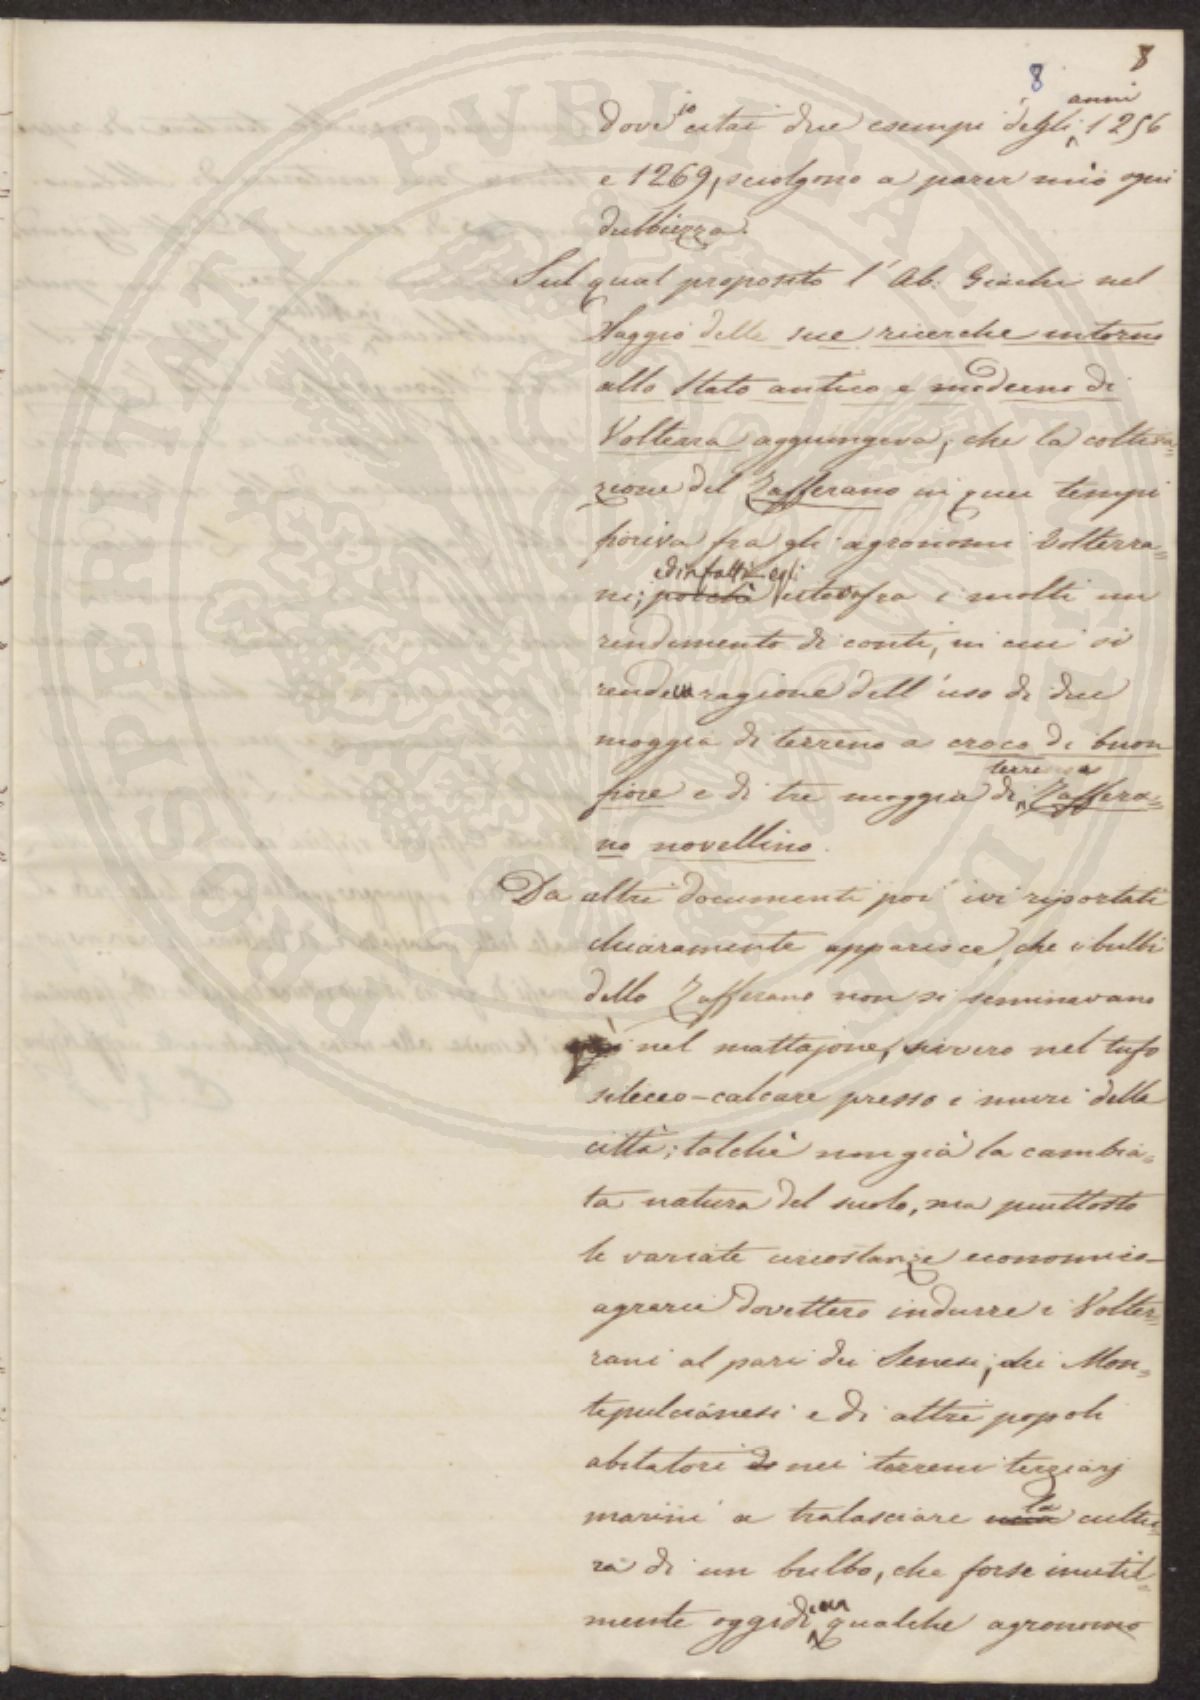 8
8
dove io citai due esempi degli anni 1256
e 1269, sciolgono a parer mio ogni
dubbiezza.
Sul qual proposito l'Ab. Giachi nel
Saggio delle sue ricerche intorno
allo Stato antico e moderno di
Volterra aggiungeva, che la coltiva=
zione del Zafferano in quei tempi
fioriva fra gli agronomi Volterra=
ni; poichè ed infatti egli cita fra i molti un
rendimento di conti, in cui si
rende ragione dell'uso di due
moggia di terreno a croco di buon
fiore e di tre moggia di terreno a Zaffera=
no novellino.
Da altri documenti poi ivi riportati
chiaramente apparisce, che i bulbi
dello Zafferano non si seminavano
nel mattajone, sivvero nel tufo
siliceo-calcare presso i muri della
città; talchè non già la cambia=
ta natura del suolo, ma piuttosto
le variate circostanze economico-
agrarie dovettero indurre i Volter=
rani al pari dei Senesi, dei Mon=
tepulcianesi e di altri popoli
abitatori di nei terreni terziarj
marini a tralasciare una la cultu=
ra di un bulbo, che forse inutil=
mente oggidì qualche agronomo
POSPERITATI PVBLICAE AVGENDAE